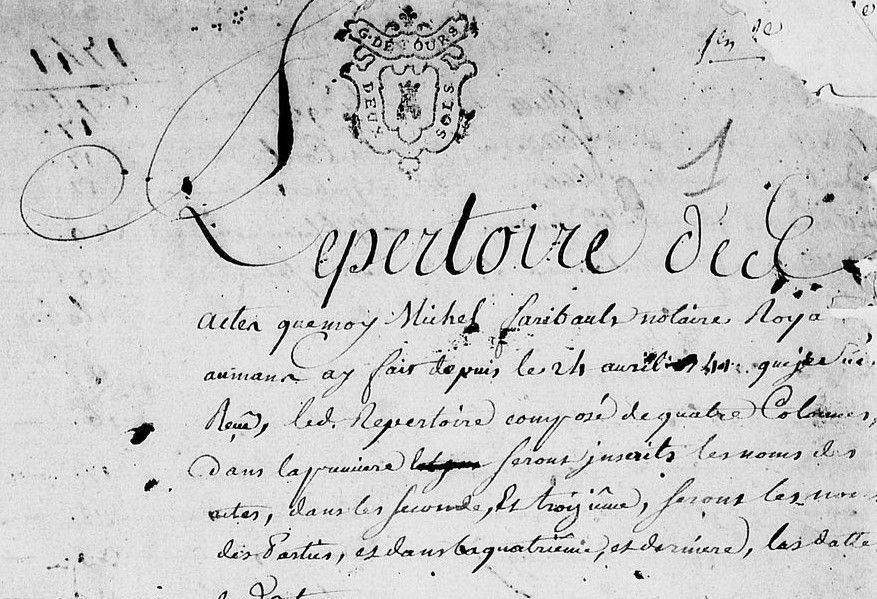 1741
G. DE TOURS
DEUX SOLS
1
Repertoire des
actes que moy Michel faribault notaire Roya
au mans ay fait depuis le 24 avril 1741 que je
Reçu, led. Repertoire composé de quatre Colonnes,
dans la premiere seront inscrits les noms des
actes, dans les seconde, Et troisiême, seront les nom
des Parties, et dans la quatriême, et derniere, les datte